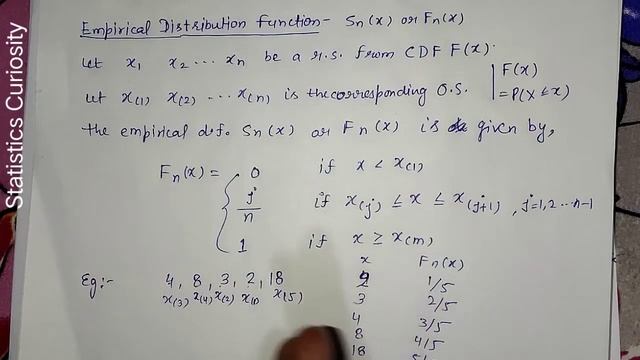 Statistics Curiosity
Empirical Distribution Function - Sn(x) or Fn(x)
Let x1 x2 ... xn be a r.s. from CDF F(x).
Let x(1) x(2) ... x(n) is the corresponding O.S.
F(x)
= P(X ≤ x)
the empirical d.f. Sn(x) or Fn(x) is given by,
Fn(x) = 0 if x < x(1)
j/n if x(j) ≤ x ≤ x(j+1) , j=1,2...n-1
1 if x ≥ x(n)
Eg:- 4, 8, 3, 2, 18
x(3) x(4) x(2) x(1) x(5)
x Fn(x)
2 1/5
3 2/5
4 3/5
8 4/5
18